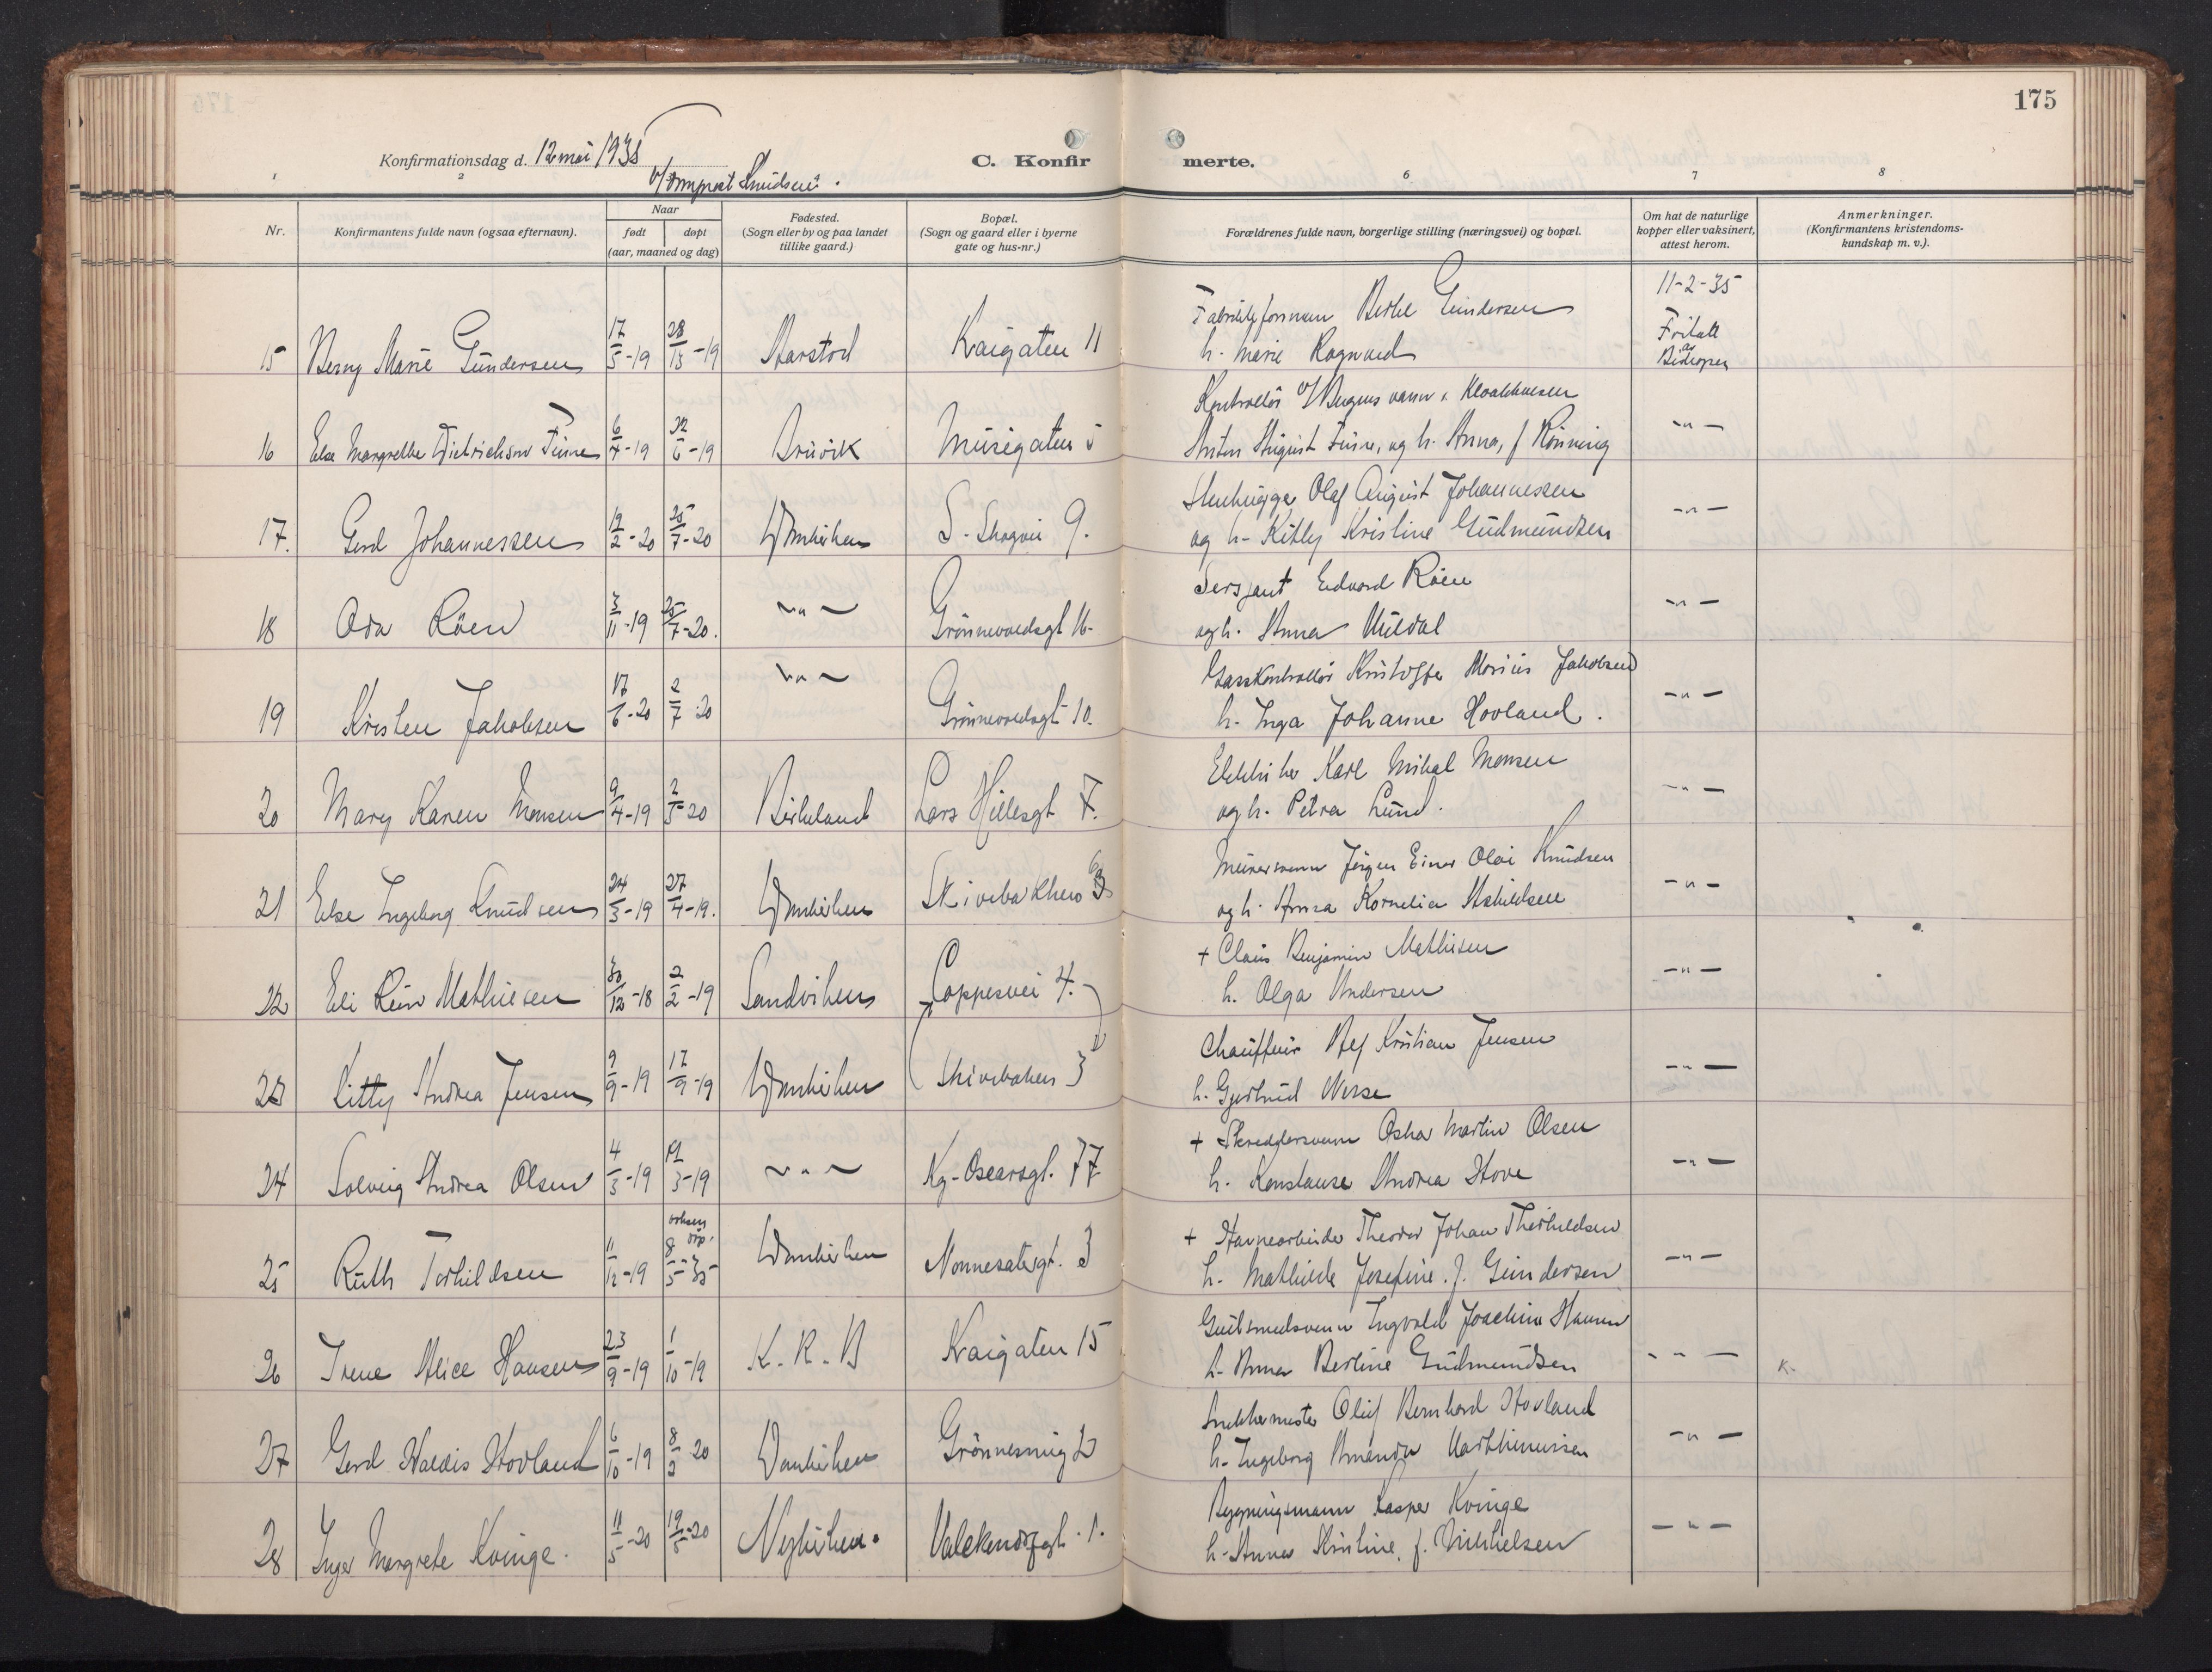 175
Konfirmationsdag d. 12 mai 1935
C. Konfirmerte.
v/ Knudsen.
1 2 6 7 8
Nr.
Konfirmantens fulde navn (ogsaa efternavn).
Naar
født døpt
(aar, maaned og dag)
Fødested.
(Sogn eller by og paa landet
tillike gaard.)
Bopæl.
(Sogn og gaard eller i byerne
gate og hus-nr.)
Forældrenes fulde navn, borgerlige stilling (næringsvei) og bopæl.
Om hat de naturlige
kopper eller vaksinert,
attest herom.
Anmerkninger.
(Konfirmantens kristendoms-
kundskap m. v.).
11-2-35
Gundersen Fritatt
15 Marie Gundersen 17/5-19 -19 Kaigaten 11
h. Marie Rognved av Biskopen
Kontrollør v/ Bergens
16 Else Margrethe 6/4-19 22/6-19 Bruvik Musegaten 5
Anton August og h. Anna, f Rønning -"-
Stenhugger Olaf August Johannessen
17. Gerd Johannessen 19/2-20 25/7-20 S. Skogvei 9.
og h. Kitty Kristine Gudmundsen -"-
Sersjant Edvard Røen
18 Oda Røen 3/11-19 25/7-20. -"- 16.
og h. Anna Uldal -"-
Gasskontrollør Kristoffer Marius Jakobsen
19 Kirsten Jakobsen 17/6-20 2/7-20 -"- 10.
h. Inga Johanne Hovland. -"-
Karl Mikal Monsen
20 Mary Karen Monsen 9/4-19 2/5-20 Birkeland Lars Hillesgt 7.
og h. Petra Lund. -"-
Murersvenn Jørgen Einar Olai Knudsen
21 Else Ingeborg Knudsen 24/3-19 27/4-19. Skivebakken
og h. Anna Kornelia -"-
+ Claus Benjamin Mathiesen
22 Eli Mathiesen 30/12-18 2/2-19 Sandviken Coppesvei 4.
h. Olga Andersen -"-
Chauffeur Kristian Jensen
23 Kitty Andrea Jensen 9/9-19 17/9-19 Skivebaken 3
h. Gjertrud -"-
+ Skreddersvenn Oskar Martin Olsen
24 Solveig Andrea Olsen 4/3-19 3-19 -"- Kg-Oscarsgt. 77
h. Konstanse Andrea Hove -"-
voksen døp.
+ Havnearbeider Theodor Johan Thorkildsen
25 Ruth Torkildsen 11/12-19 8/5-35 Nonnesatergt. 3
h. Mathilde Josefine. f. Gundersen -"-
Gullsmedsvenn Ingvald Joachim Hansen
26 Irene Alice Hansen 23/9-19 1/10-19 K. K. B Kaigaten 15
h. Anna Bertine Gudmundsen -"- K.
Snekkermester Oluf Bernhard Hovland
27 Gerd Haldis Hovland 6/10-19 8/2 20
h. Ingeborg Amanda -"-
Bygningsmann Kasper Kvinge
28 Inger Margrete Kvinge. 11/5-20 Nykirken. Valckendorfsgt. 1.
h. Anna Kristine, f. Mikkelsen -"-